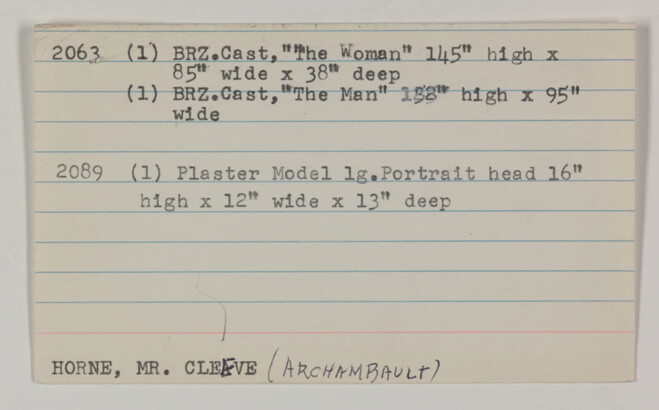 2063 (1) BRZ.Cast,"The Woman" 145" high x
85" wide x 38" deep
(1) BRZ.Cast,"The Man" high x 95"
wide
2089 (1) Plaster Model lg.Portrait head 16"
high x 12" wide x 13" deep
HORNE, MR. CLEEVE (ARCHAMBAULT)